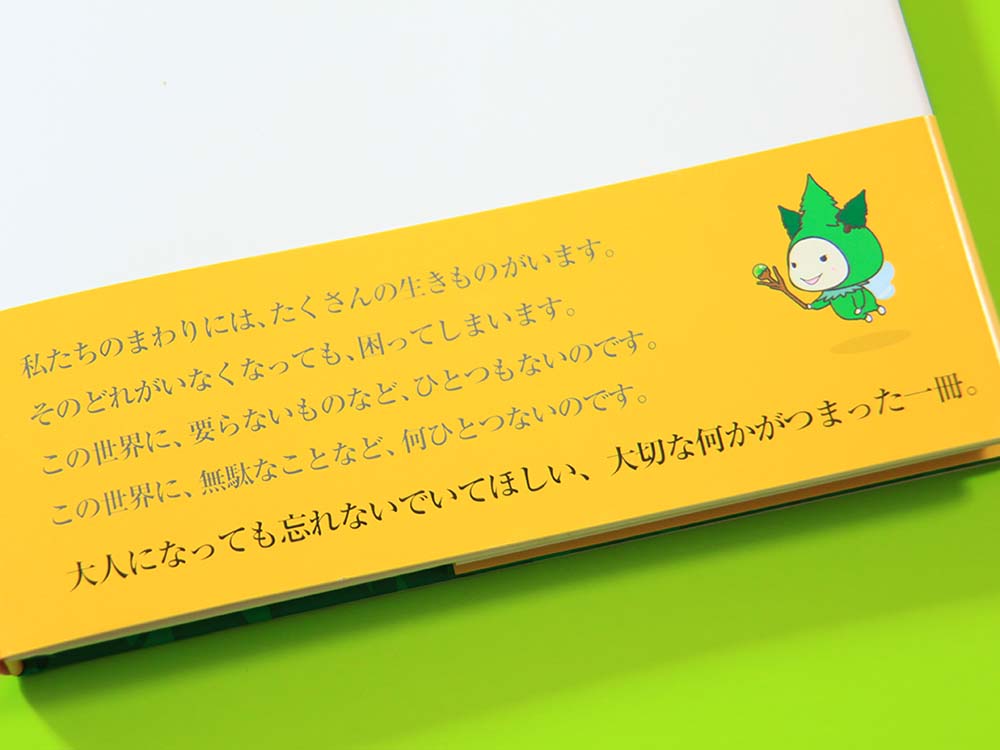 私たちのまわりには、たくさんの生きものがいます。
そのどれがいなくなっても、困ってしまいます。
この世界に、要らないものなど、ひとつもないのです。
この世界に、無駄なことなど、何ひとつないのです。
大人になっても忘れないでいてほしい、大切な何かがつまった一冊。